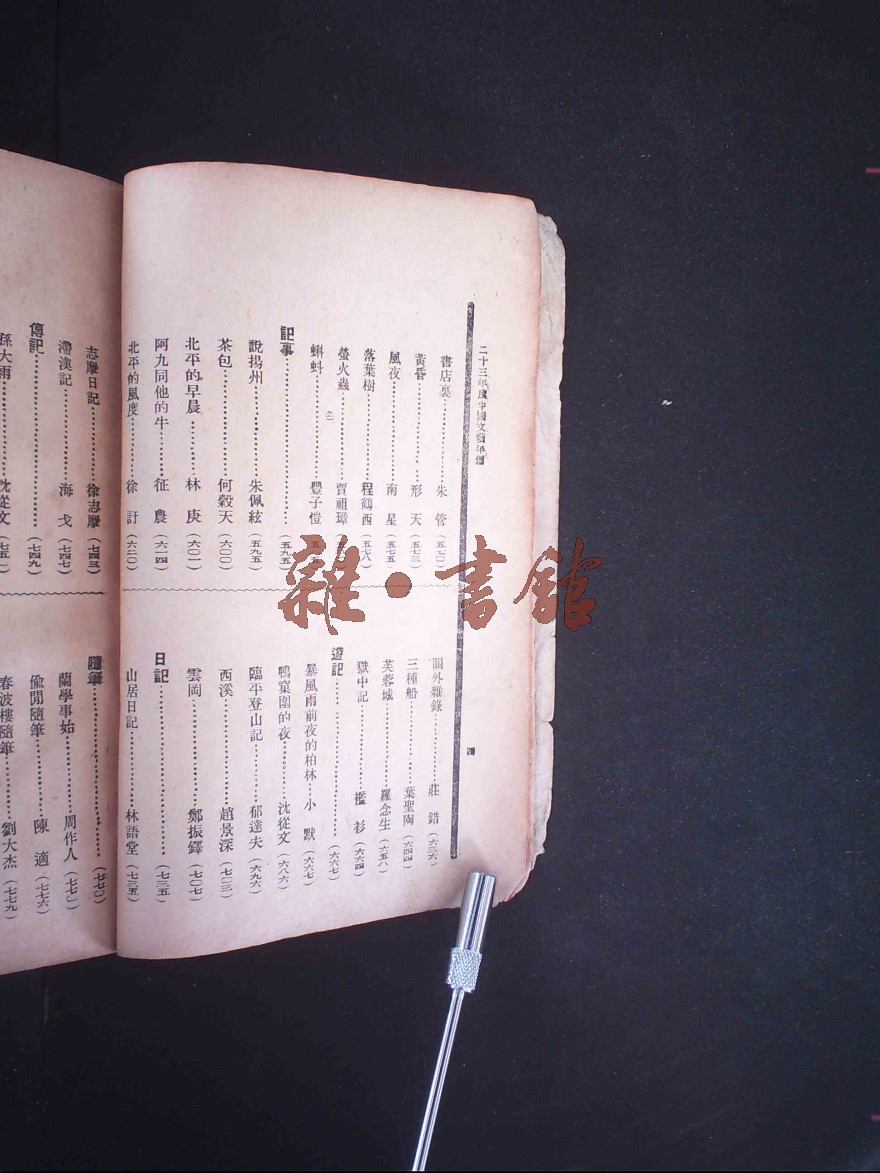 二十三年度中國文藝年鑑
書店裏………朱管（五七〇）
黃昏………形天（五七三）
風夜………南星（五七五）
落葉樹………程鶴西（五七八）
螢火蟲………賈祖璋
蝌蚪………豐子愷
記事………（五九五）
說揚州………朱佩絃（五九五）
茶包………何穀天（六〇〇）
北平的早晨………林庚（六〇一）
阿九同他的牛………征農（六一四）
北平的風度………徐訏（六二〇）
關外雜錄………莊錯（六三六）
三種船………葉聖陶（六四四）
芙蓉城………羅念生（六五八）
獄中記………襤衫（六六四）
遊記………（六六七）
暴風雨前夜的柏林…小默（六六七）
鴨窠圍的夜………沈從文（六八六）
臨平登山記………郁達夫（六九六）
西溪………趙景深（七〇三）
雲岡………鄭振鐸（七〇七）
日記………（七三五）
山居日記………林語堂（七三五）
志摩日記………徐志摩（七四三）
滯漢記………海戈（七四七）
傳記………（七四九）
孫大雨………沈從文（七五
隨筆………（七七〇）
蘭學事始………周作人（七七〇）
偸閒隨筆………陳適（七七六）
春波樓隨筆………劉大杰（七七九）
雜·書館